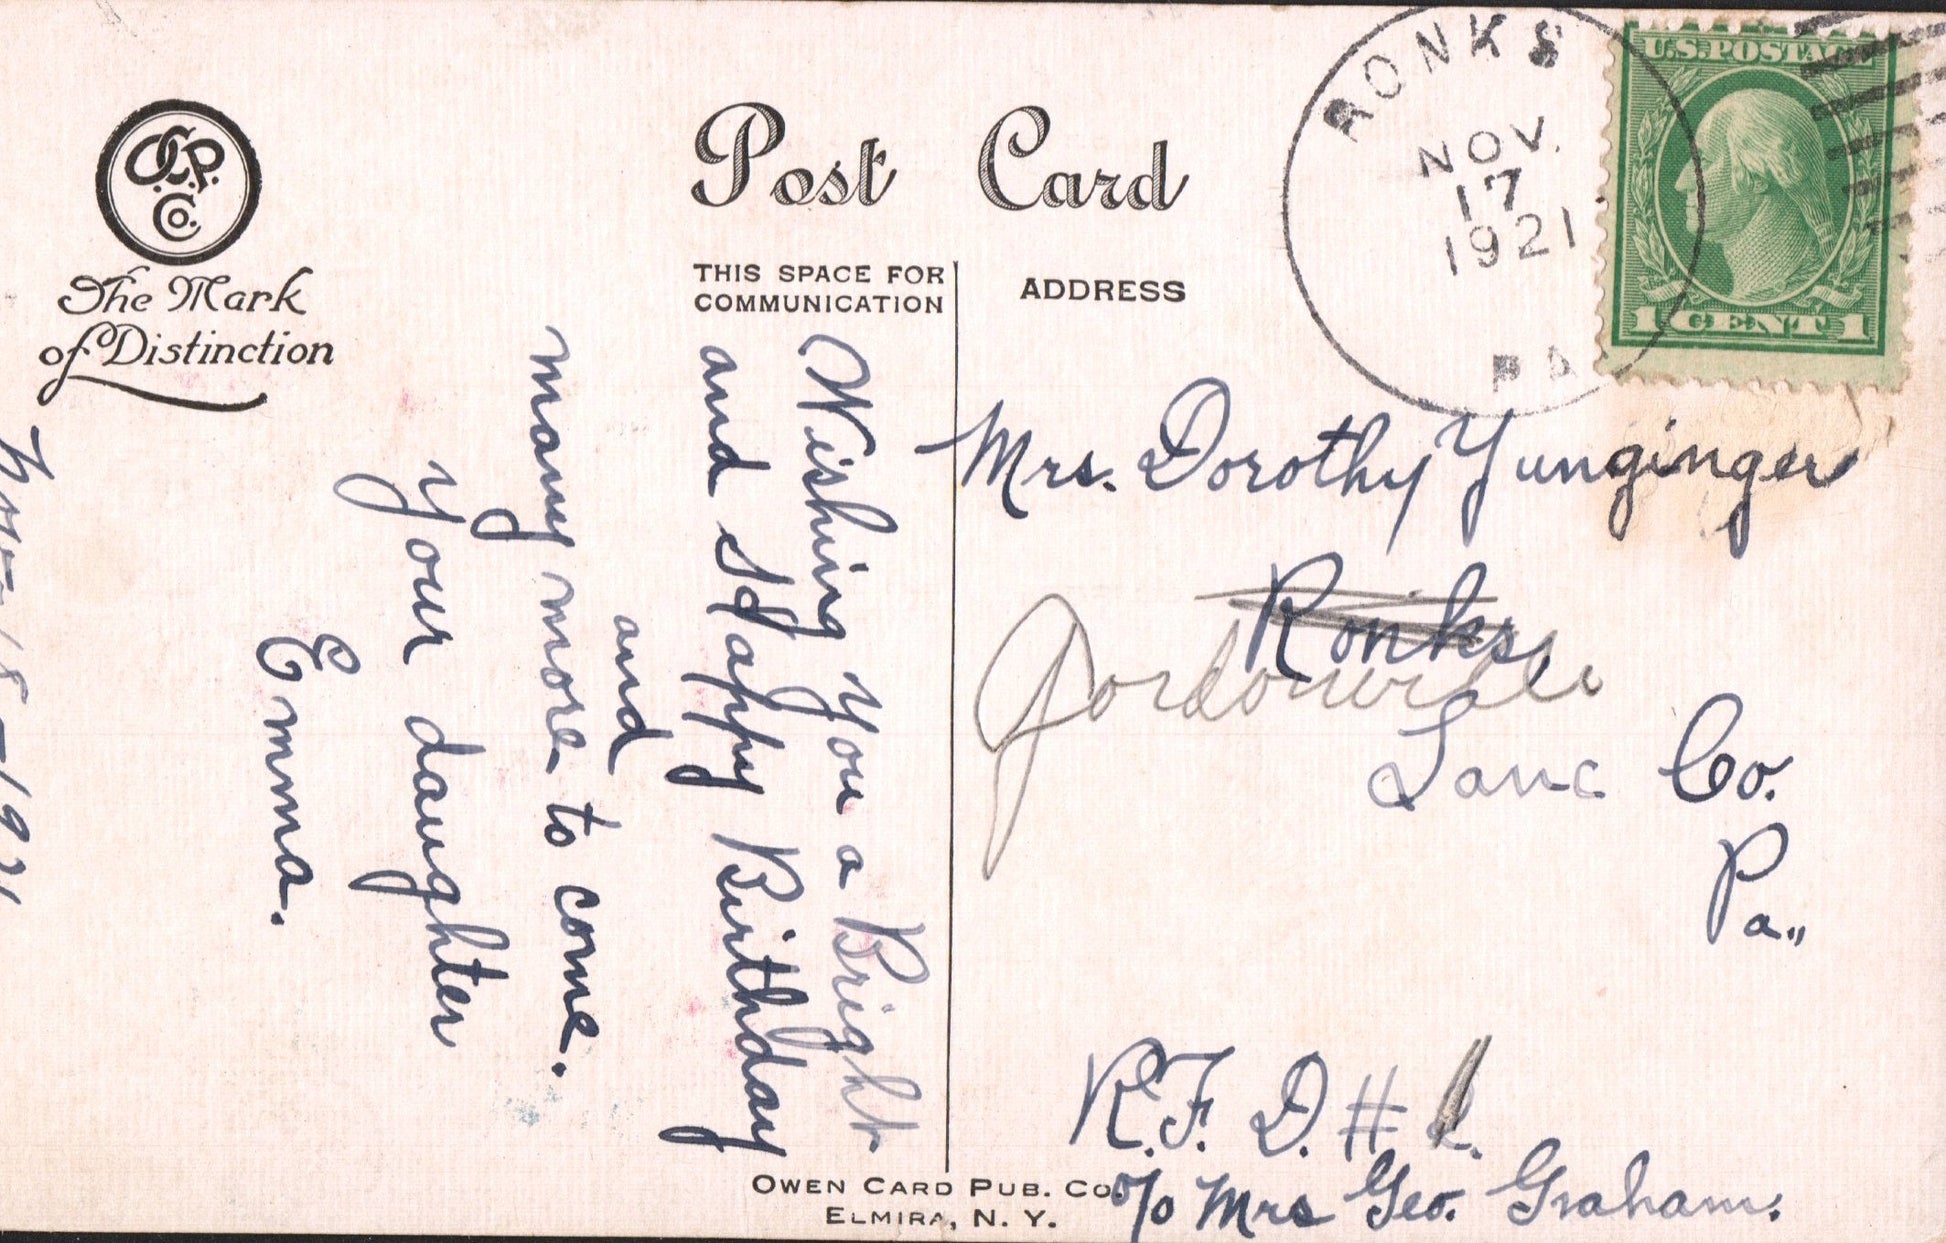 O.C.P. Co.
The Mark
of Distinction
Post Card
THIS SPACE FOR
COMMUNICATION
ADDRESS
RONKS
NOV.
17
1921
PA
U.S. POSTAGE
1 CENT 1
Wishing you a Bright
and Happy Birthday
and
many more to come.
your daughter
Emma.
Nov-18-1921
Mrs. Dorothy Yunginger
Ronks,
Gordonville
Lanc Co.
Pa.,
R.F.D. #
c/o Mrs Geo. Graham.
OWEN CARD PUB. CO.
ELMIRA, N. Y.